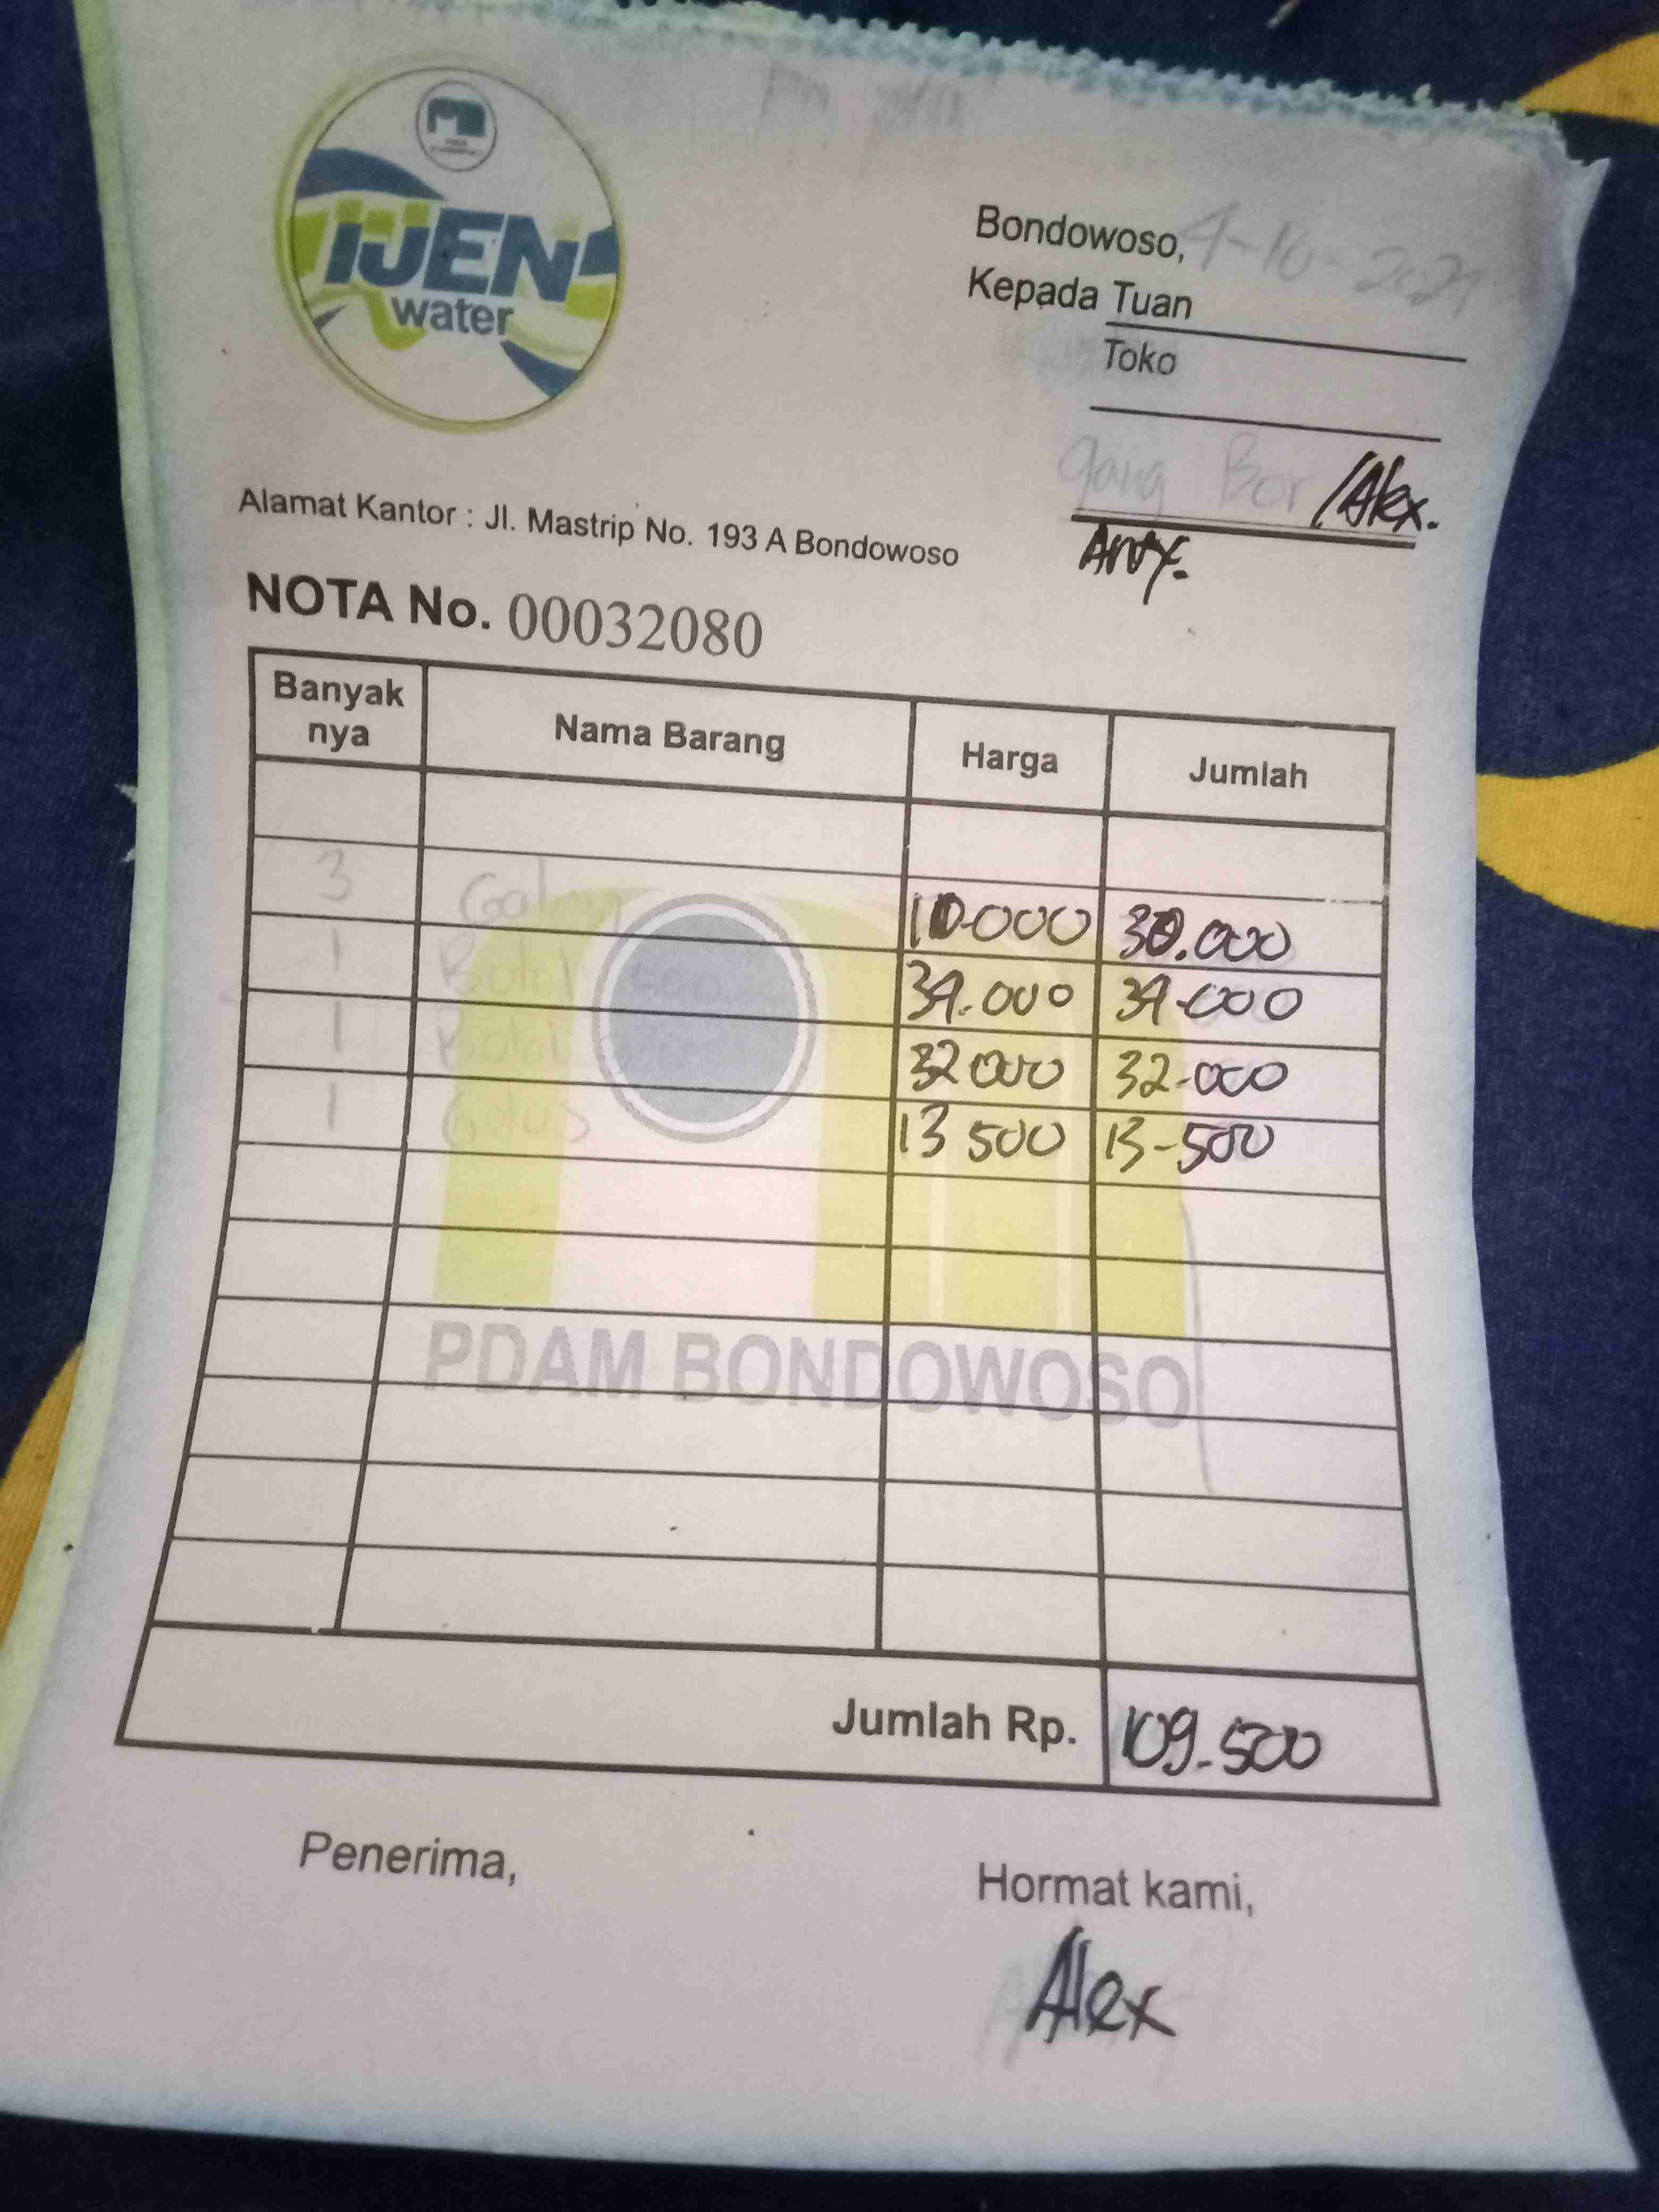 IJEN
water
Bondowoso, 4-10-2021
Kepada Tuan
Toko
gang Bor /Alex.
Alamat Kantor : Jl. Mastrip No. 193 A Bondowoso
NOTA No. 00032080
Banyak nya Nama Barang Harga Jumlah
3 Galon 10.000 30.000
1 Botol 34.000 34.000
1 Botol 32000 32-000
1 Gelas 13 500 13-500
PDAM BONDOWOSO
Jumlah Rp. 109.500
Penerima, Hormat kami,
Alex